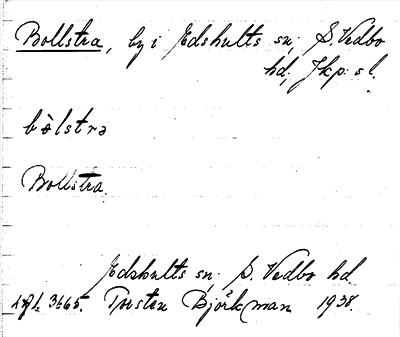 Bollstra, by i Edshults sn, S. Vedbo
hd, Jkp. s l.
bòlstrə
Bollstra.
Edshults sn, S. Vedbo hd.
3665. Torsten Björkman 1938.